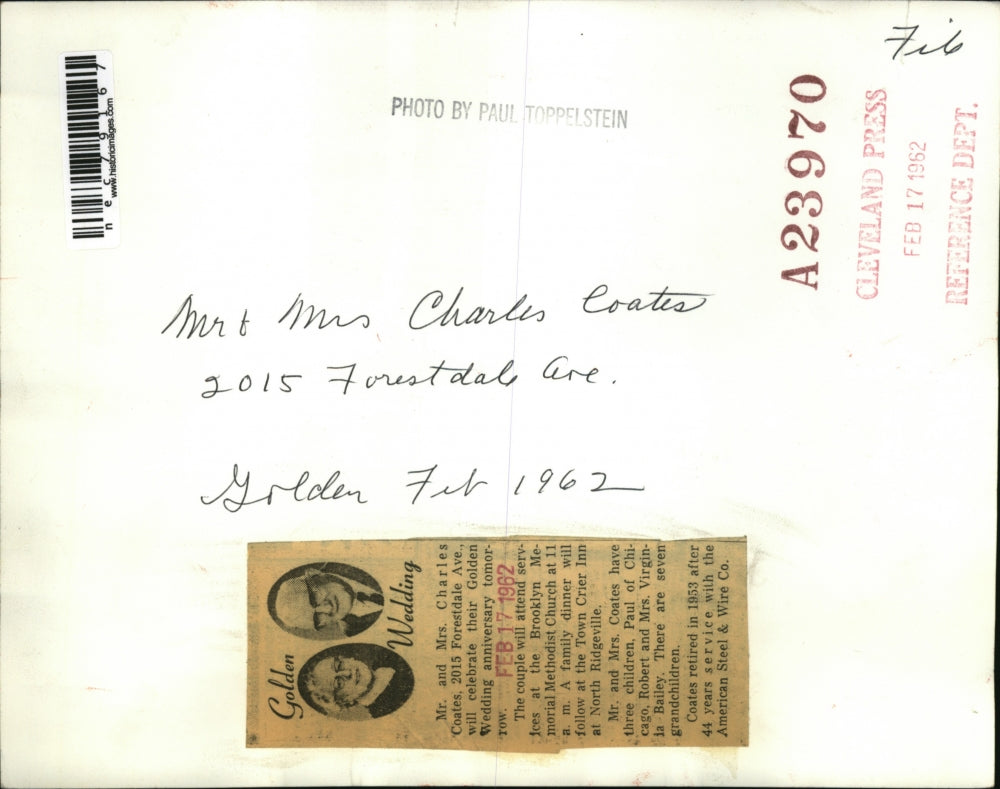 Feb
PHOTO BY PAUL TOPPELSTEIN
A23970
CLEVELAND PRESS
FEB 17 1962
REFERENCE DEPT.
www.historicimages.com
Mr & Mrs Charles Coates
2015 Forestdale Ave.
Golden Feb 1962
Golden
Wedding
Mr. and Mrs. Charles
Coates, 2015 Forestdale Ave.,
will celebrate their Golden
Wedding anniversary tomor-
row.
FEB 17 1962
The couple will attend serv-
ices at the Brooklyn Me-
morial Methodist Church at 11
a. m. A family dinner will
follow at the Town Crier Inn
at North Ridgeville.
Mr. and Mrs. Coates have
three children, Paul of Chi-
cago, Robert and Mrs. Virgin-
ia Bailey. There are seven
grandchildren.
Coates retired in 1953 after
44 years service with the
American Steel & Wire Co.